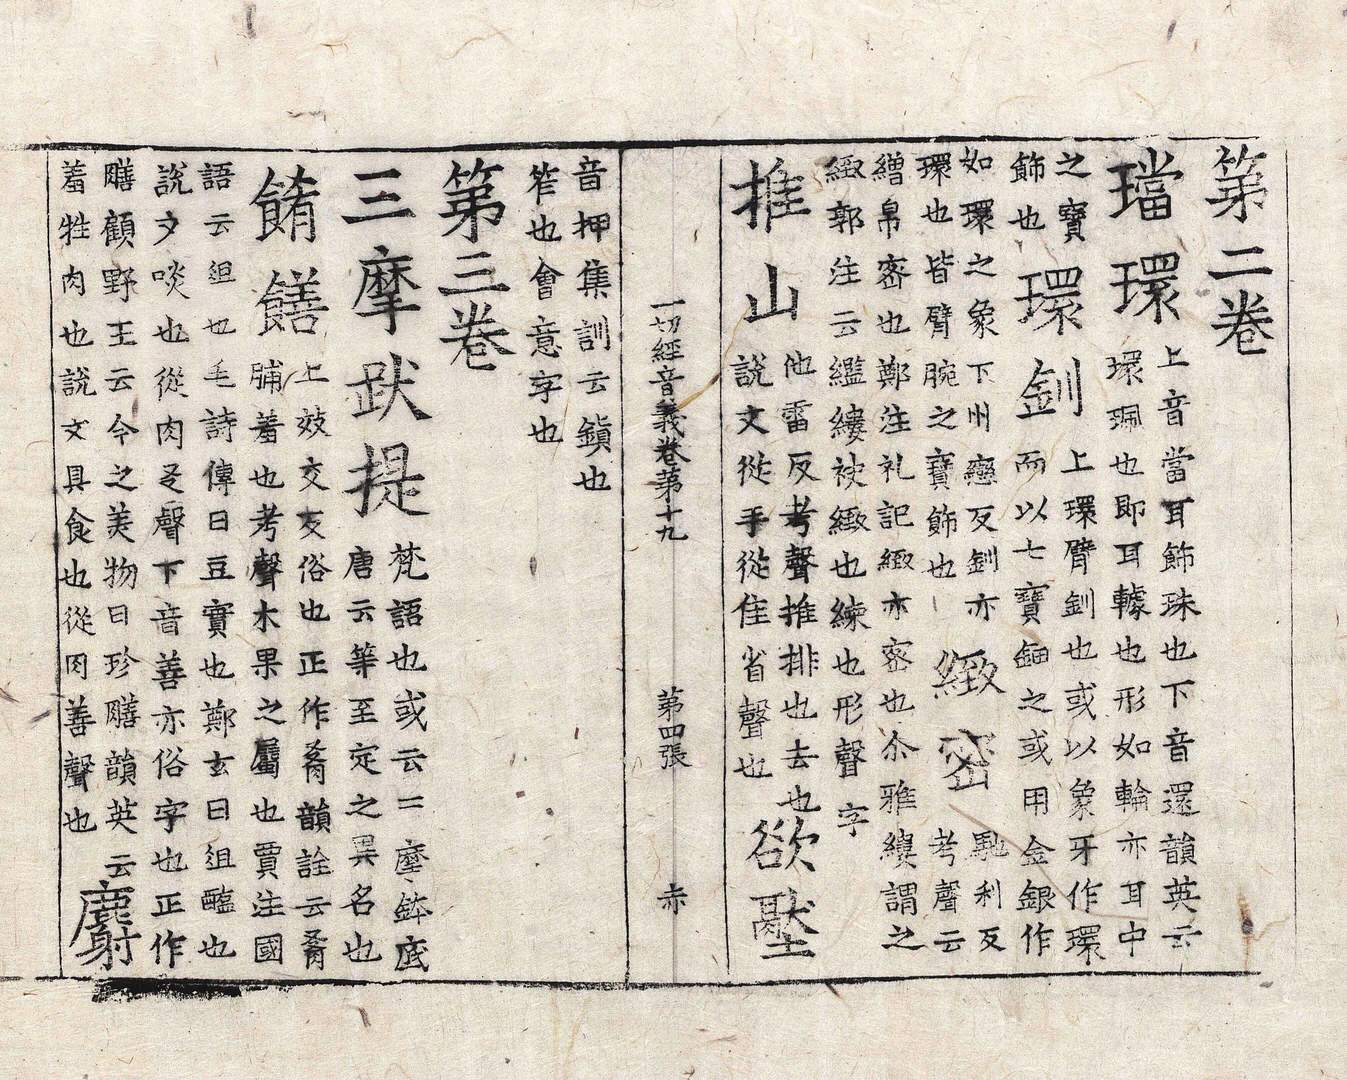 第二卷
璫環上音當耳飾珠也下音還韻英云
環珮也即耳璩也形如輪亦耳中
之寶
飾也
環釧上環臂釧也或以象牙作環
而以七寶鈿之或用金銀作
如環之象下州戀反釧亦
環也皆臂腕之寶飾也
緻密馳利反
考聲云
繒帛密也鄭注礼記緻亦密也尒雅縷謂之
緻郭注云繿縷袂緻也練也形聲字
推山他雷反考聲推排也去也
說文從手從隹省聲也
欲壓
一切經音義卷第十九 第四張 赤
音押集訓云鎮也
笮也會意字也
第三卷
三摩跋提梵語也或云三摩鉢底
唐云等至定之異名也
餚饍上效交反俗也正作肴韻詮云肴
脯羞也考聲木果之屬也賈注國
語云俎也毛詩傳曰豆實也鄭玄曰俎醢也
說文啖也從肉爻聲下音善亦俗字也正作
膳顧野王云今之美物曰珍膳韻英云
羞牲肉也說文具食也從肉善聲也
麝